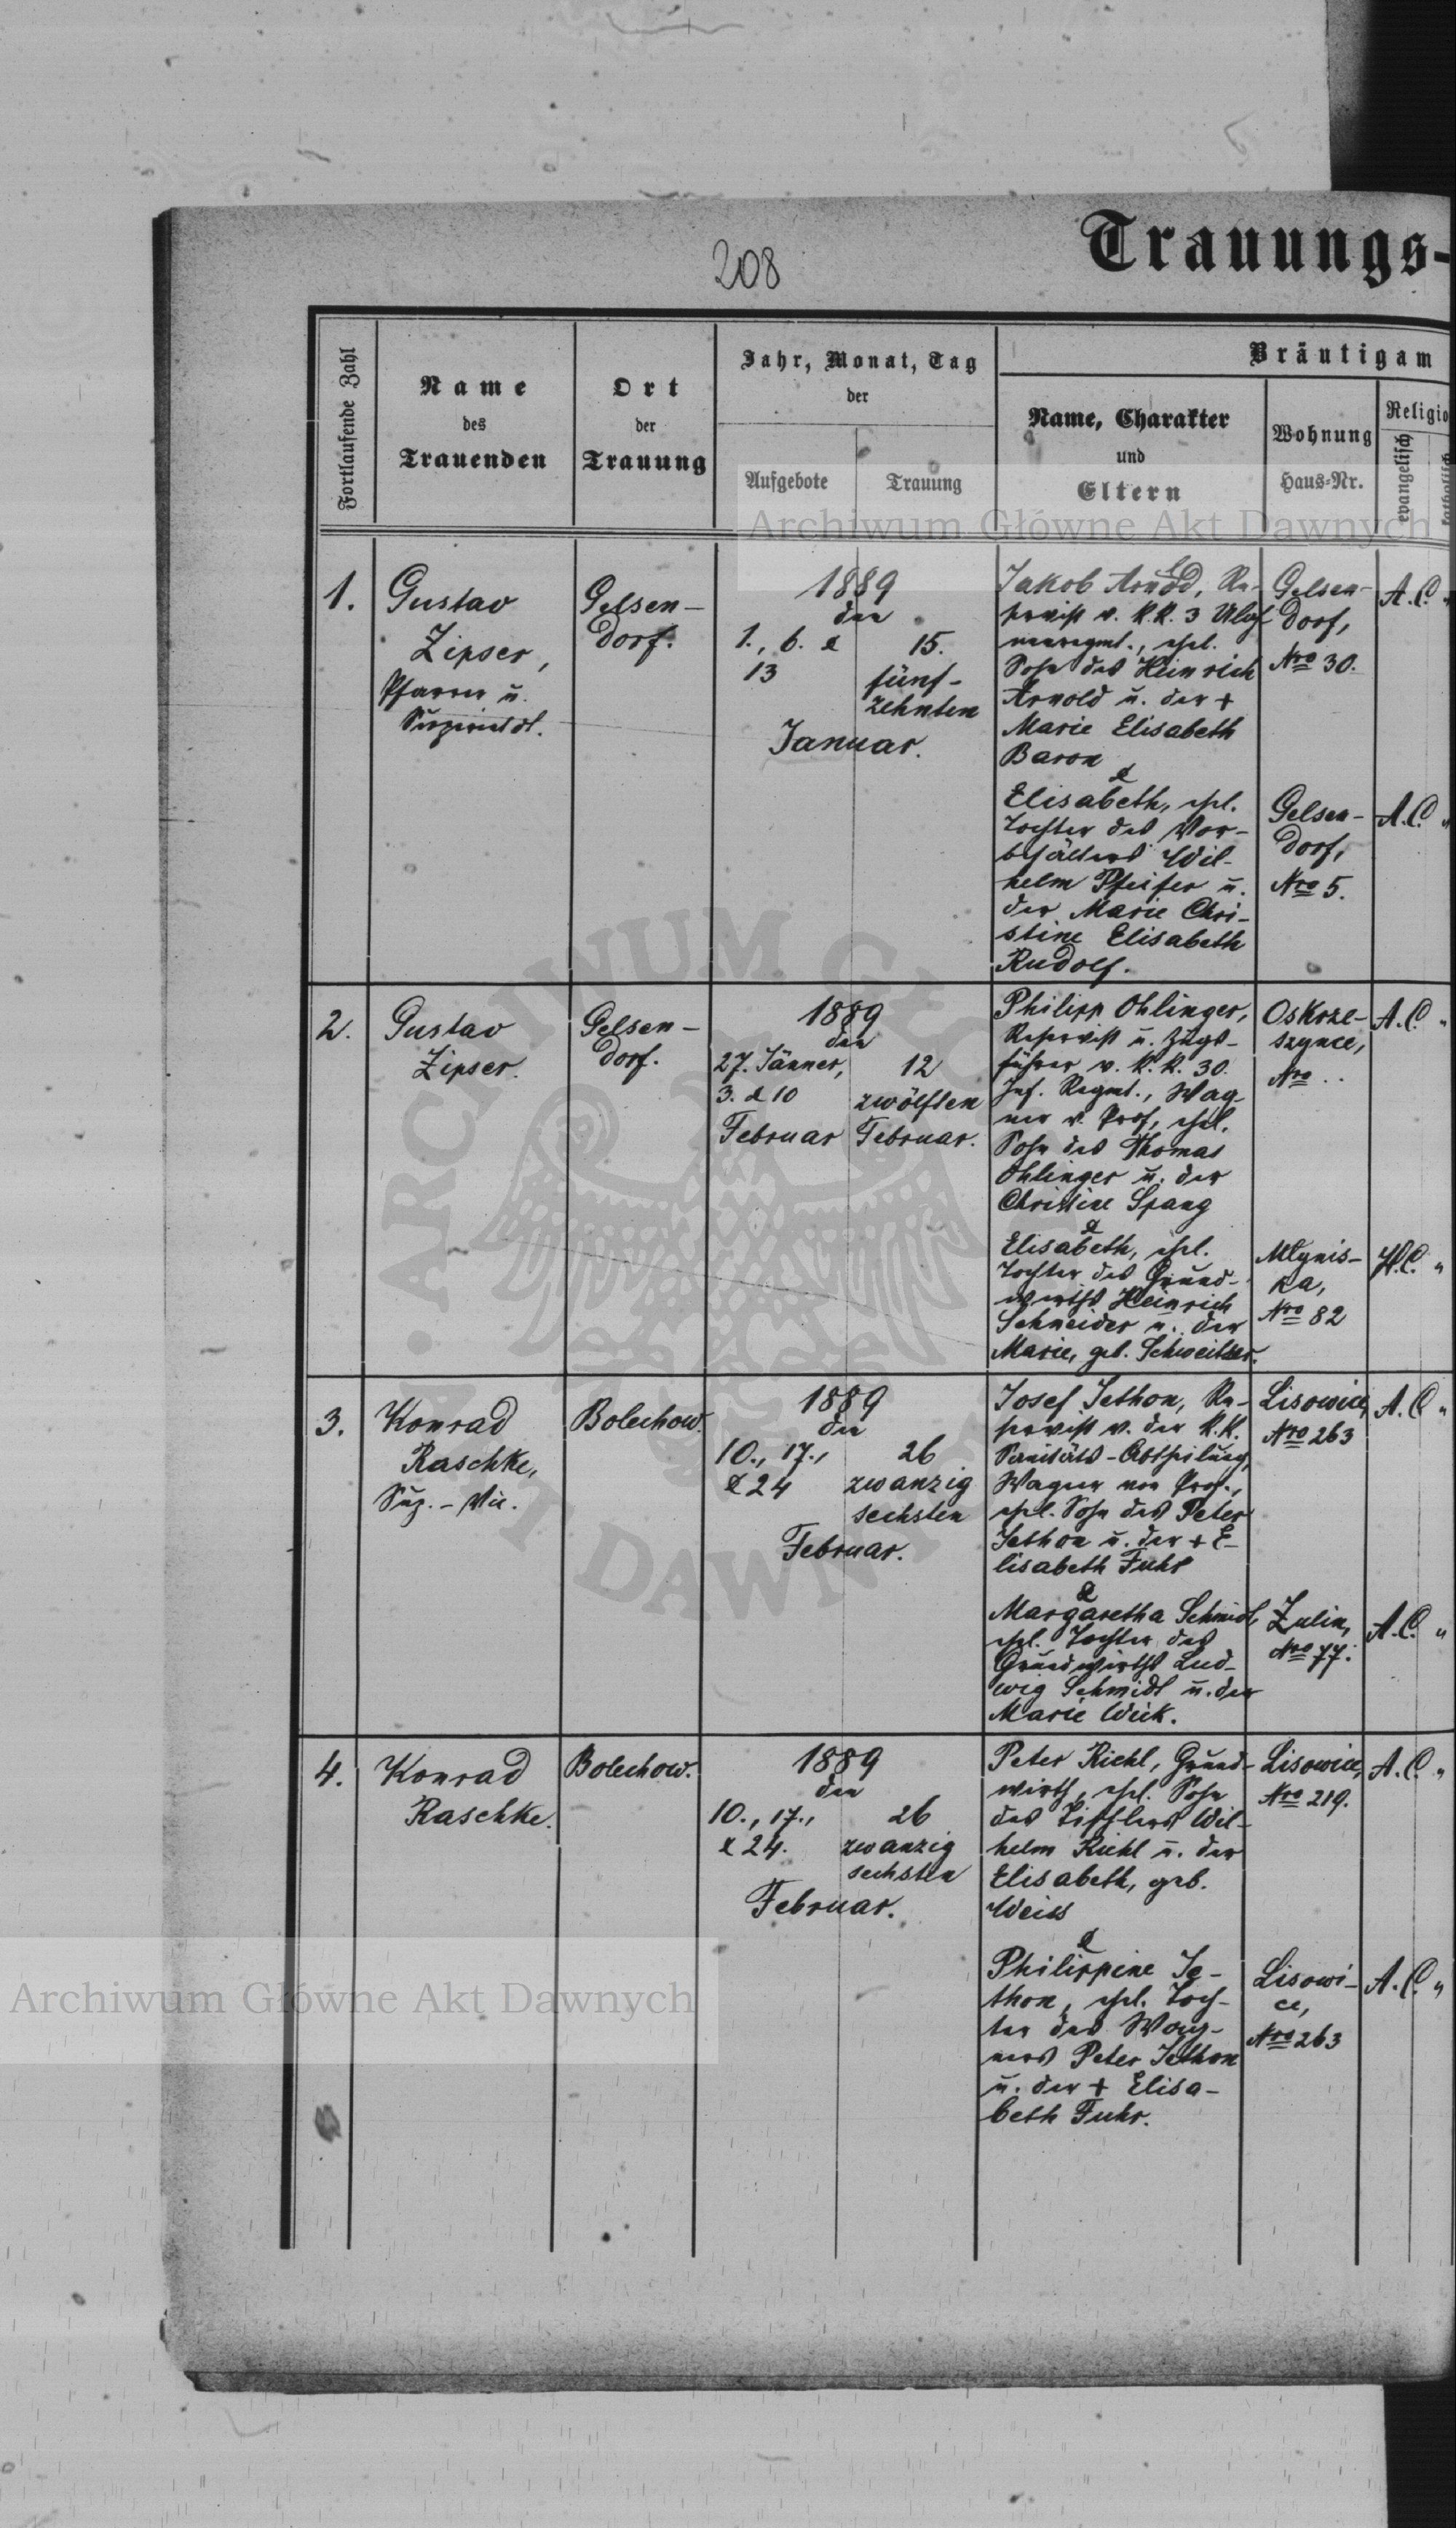 208
Trauungs-
Fortlaufende Zahl
Name
des
Trauenden
Ort
der
Trauung
Jahr, Monat, Tag
der
Aufgebote
Trauung
Bräutigam
Name, Charakter
und
Eltern
Wohnung
Haus-Nr.
Religio
evangelisch
katholisch
Archiwum Główne Akt Dawnych
1.
Gustav
Zipser,
Pfarrer u.
Superintdt.
Gelsen-
dorf.
1889
den
1., 6. &
13
15.
fünf-
zehnten
Januar.
Jakob Arnold, Re-
servist v. k.k. 3 Uhla-
nenregmt., ehel.
Sohn des Heinrich
Arnold u. der +
Marie Elisabeth
Baron
&
Elisabeth, ehel.
Tochter des Vor-
behälters Wil-
helm Pfeifer u.
der Marie Chri-
stine Elisabeth
Rudolf.
Gelsen-
dorf,
Nro 30.
A.C. "
Gelsen-
dorf,
Nro 5.
A.C. "
2.
Gustav
Zipser.
Gelsen-
dorf.
1889
den
27. Jänner,
3. & 10
Februar
12
zwölften
Februar.
Philipp Ohlinger,
Reservist u. Zugs-
führer v. k.k. 30.
Inf. Regmt., Wag-
ner v. Prof., ehel.
Sohn des Thomas
Ohlinger u. der
Christine Spang
&
Elisabeth, ehel.
Tochter des Grund-
wirths Heinrich
Schneider u. der
Marie, geb. Schweitzer.
Oskrze-
szynce,
Nro ..
A.C. "
Młynis-
ka,
Nro 82
H.C. "
3.
Konrad
Raschke,
Sup.-Vic.
Bolechow.
1889
den
10., 17.,
& 24
26
zwanzig
sechsten
Februar.
Josef Jethon, Re-
servist v. der k.k.
Sanitäts-Abtheilung,
Wagner von Prof.,
ehel. Sohn des Peter
Jethon u. der + E-
lisabeth Fuhr
&
Margaretha Schmidt,
ehel. Tochter des
Grundwirths Lud-
wig Schmidt u. der
Marie Weik.
Lisowice,
Nro 263
A.C. "
Zulin,
Nro 77.
A.C. "
4.
Konrad
Raschke.
Bolechow.
1889
den
10., 17.,
& 24.
26
zwanzig
sechsten
Februar.
Peter Riehl, Grund-
wirth, ehel. Sohn
des Tischlers Wil-
helm Riehl u. der
Elisabeth, geb.
Weiss
&
Philippine Je-
thon, ehel. Toch-
ter des Wag-
ners Peter Jethon
u. der + Elisa-
beth Fuhr.
Lisowice,
Nro 219.
A.C. "
Lisowi-
ce,
Nro 263
A.C. "
Archiwum Główne Akt Dawnych